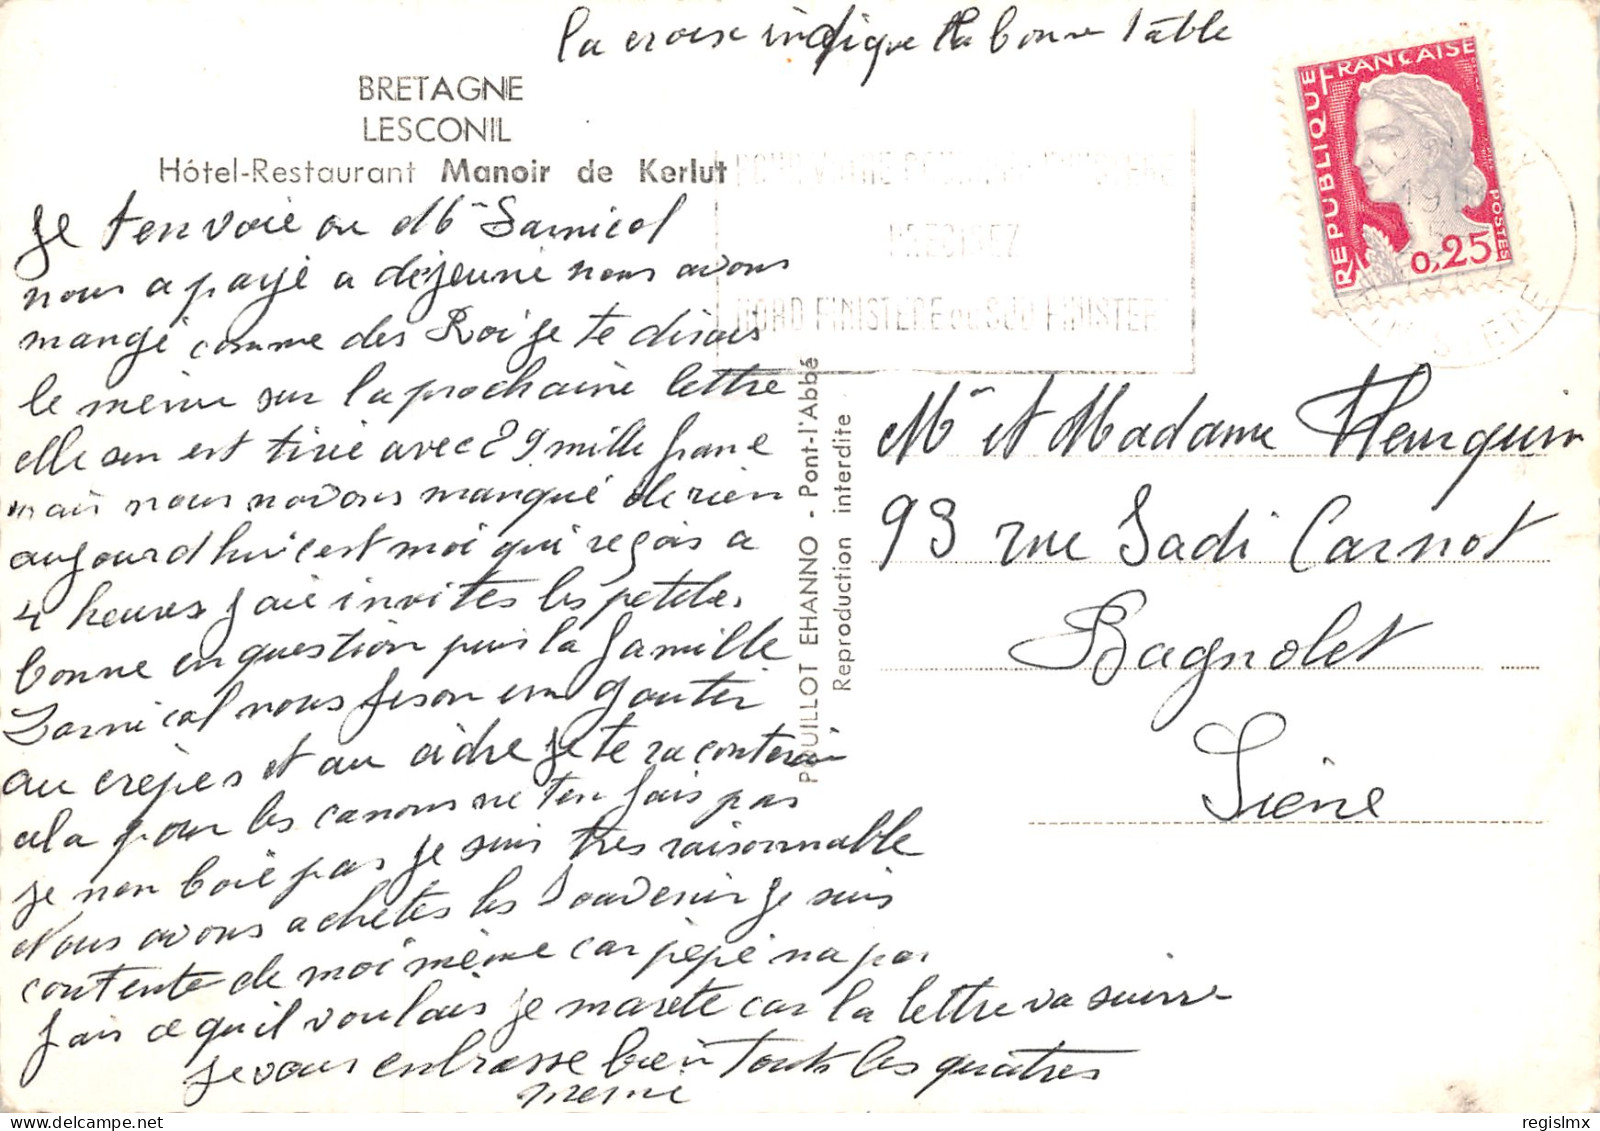 la croix indique la bonne table
BRETAGNE
LESCONIL
Hôtel-Restaurant Manoir de Kerlut
Je t'envoie ou Mme Sarnicol
nous a payé a déjeuné nous avons
mangé comme des Roi je te dirais
le même sur la prochaine lettre
elle sen est tirée avec 29 mille franc
mais nous navons manqué de rien
aujourd'hui c'est moi qui reçois a
4 heures jaie invités les petites
bonne en question puis la famille
Sarnicol nous feson un gouter
au crêpes et au cidre je te raconterai
cela pour les canons ne ten fais pas
je nen boie pas je suis tres raisonnable
Nous avons achetés les Souvenir je suis
contente de moi même car pépé na pas
fais ce qu'il voulais je marete car la lettre va suivre
je vous enbrasse bien touts les quatres
meme
POUILLOT EHANNO - Pont-l'Abbé
Reproduction interdite
REPUBLIQUE FRANÇAISE
0,25
POSTES
PRECISEZ
NORD FINISTERE ou SUD FINISTERE
Mr et Madame Fleurquin
93 rue Sadi Carnot
Bagnolet
Seine
regislmx